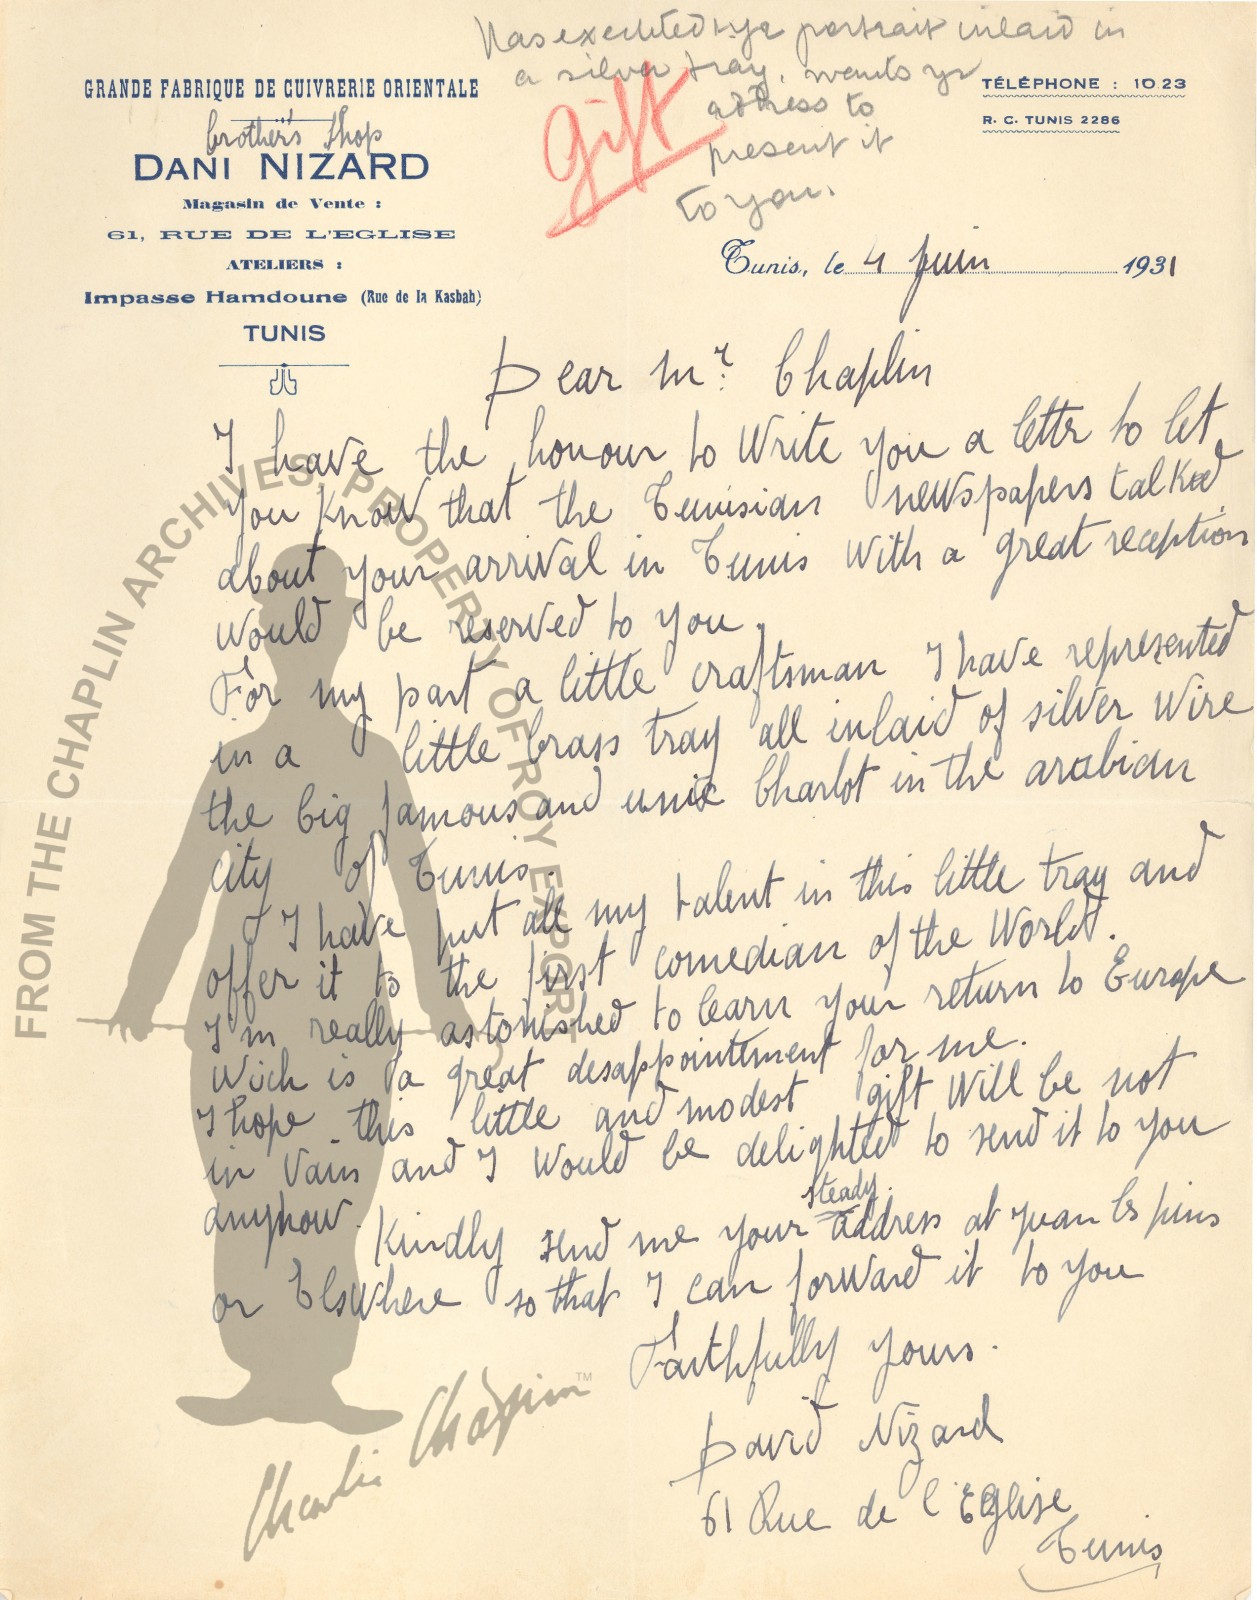 Has executed yr portrait inlaid in
a silver tray, wants yr
address to
present it
to you.
gift
GRANDE FABRIQUE DE CUIVRERIE ORIENTALE
brother's shop
DANI NIZARD
Magasin de Vente :
61, RUE DE L'EGLISE
ATELIERS :
Impasse Hamdoune (Rue de la Kasbah)
TUNIS
TÉLÉPHONE : 10.23
R. C. TUNIS 2286
Tunis, le 4 Juin 1931
Dear Mr. Chaplin
I have the honour to Write You a letter to let
You know that the Tunisian newspapers talked
about your arrival in Tunis With a great reception
Would be reserved to you.
For my part a little craftsman I have represented
in a little brass tray all inlaid of silver Wire
the big famous and unic Charlot in the arabian
city of Tunis.
I have put all my talent in this little tray and
offer it to the first comedian of the World.
I'm really astonished to learn your return to Europe
Wich is a great desappointment for me.
I hope this little and modest gift Will be not
in Vain and I Would be delighted to send it to you
anyhow. Kindly send me your steady address at Juan les pins
or ElsWhere so that I can forward it to you
Faithfully yours.
David Nizard
61 Rue de l'Eglise
Tunis
FROM THE CHAPLIN ARCHIVES. PROPERTY OF ROY EXPORT
Charlie Chaplin™